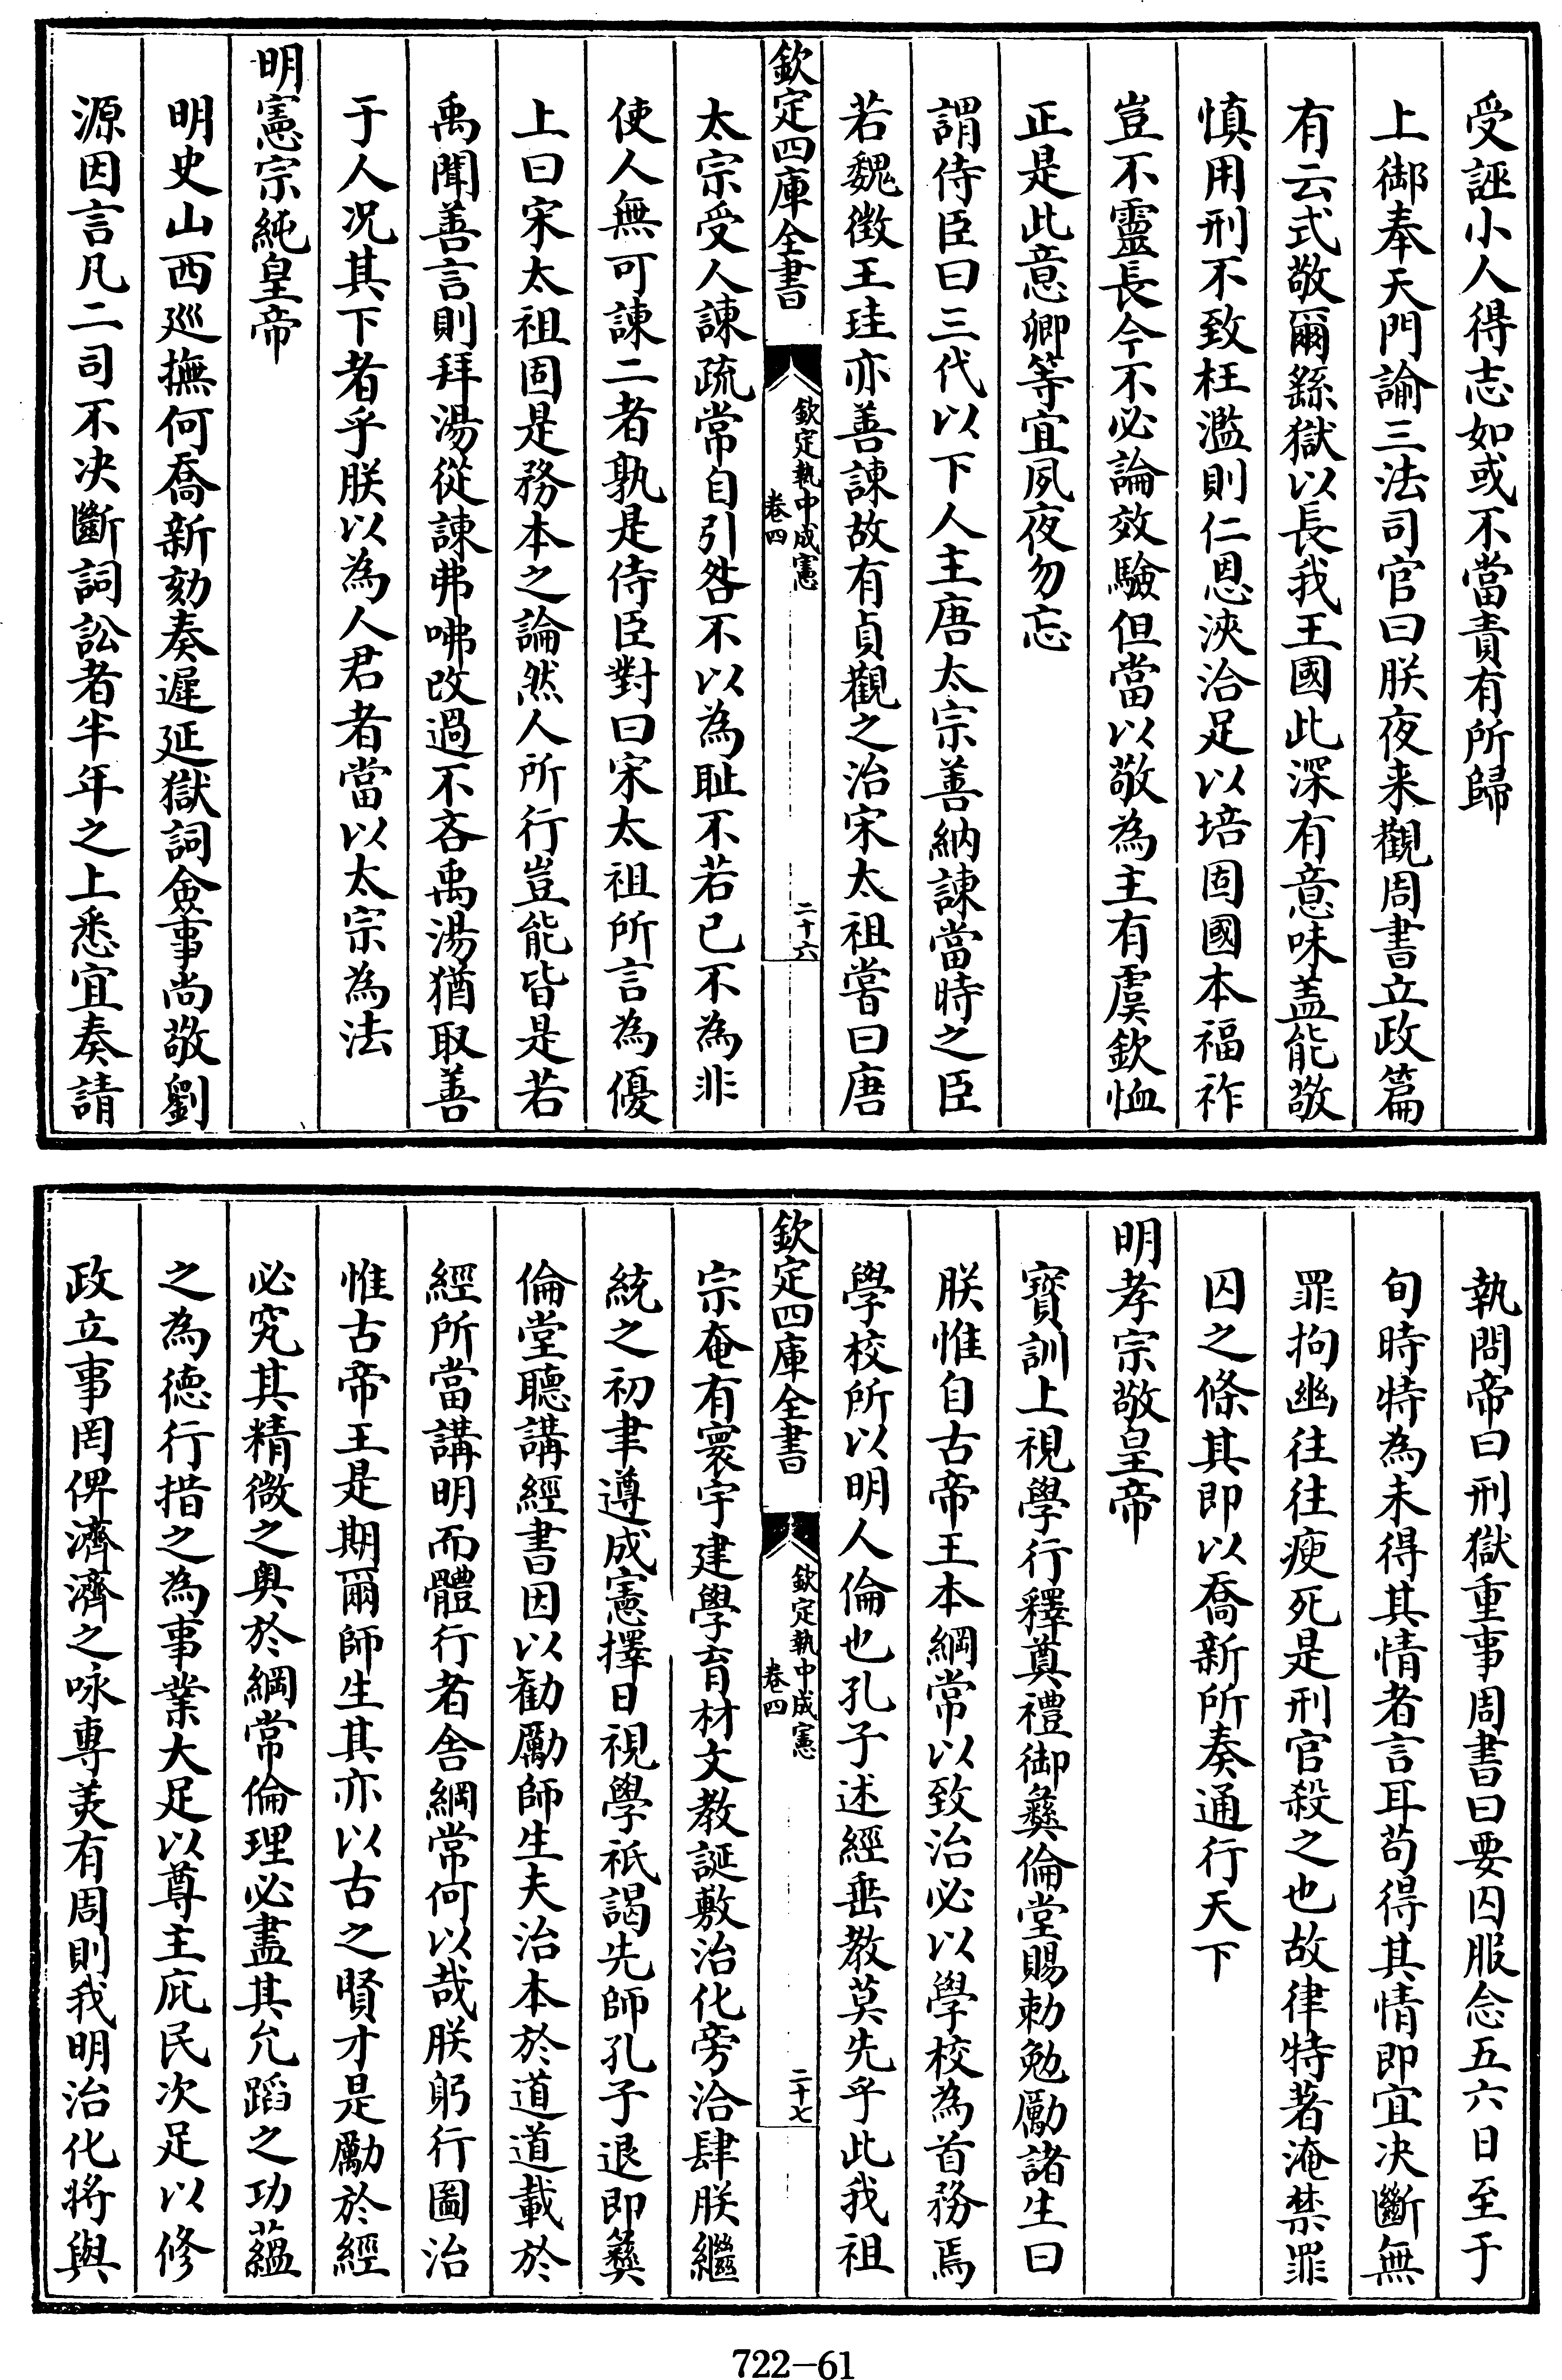 受誣小人得志如或不當責有所歸
上御奉天門諭三法司官曰朕夜来觀周書立政篇
有云式敬爾繇獄以長我王國此深有意味盖能敬
慎用刑不致枉濫則仁恩浹洽足以培固國本福祚
豈不靈長今不必論效驗但當以敬為主有虞欽恤
正是此意卿等宜夙夜勿忘
謂侍臣曰三代以下人主唐太宗善納諫當時之臣
若魏徵王珪亦善諫故有貞觀之治宋太祖嘗曰唐
欽定四庫全書
欽定執中成憲
卷四
二十六
太宗受人諫疏常自引咎不以為耻不若已不為非
使人無可諫二者孰是侍臣對曰宋太祖所言為優
上曰宋太祖固是務本之論然人所行豈能皆是若
禹聞善言則拜湯從諫弗咈改過不吝禹湯猶取善
于人况其下者乎朕以為人君者當以太宗為法
明憲宗純皇帝
明史山西廵撫何喬新劾奏遲延獄詞僉事尚敬劉
源因言凡二司不决斷詞訟者半年之上悉宜奏請
執問帝曰刑獄重事周書曰要囚服念五六日至于
旬時特為未得其情者言耳苟得其情即宜决斷無
罪拘幽往往瘐死是刑官殺之也故律特著淹禁罪
囚之條其即以喬新所奏通行天下
明孝宗敬皇帝
寳訓上視學行釋奠禮御彝倫堂賜勅勉勵諸生曰
朕惟自古帝王本綱常以致治必以學校為首務焉
學校所以明人倫也孔子述經垂教莫先乎此我祖
欽定四庫全書
欽定執中成憲
卷四
二十七
宗奄有寰宇建學育材文教誕敷治化旁洽肆朕繼
統之初聿遵成憲擇日視學祇謁先師孔子退即彝
倫堂聽講經書因以勸勵師生夫治本於道道載於
經所當講明而體行者舍綱常何以哉朕躬行圖治
惟古帝王是期爾師生其亦以古之賢才是勵於經
必究其精微之奥於綱常倫理必盡其允蹈之功蘊
之為德行措之為事業大足以尊主庇民次足以修
政立事罔俾濟濟之咏專美有周則我明治化將與
722-61